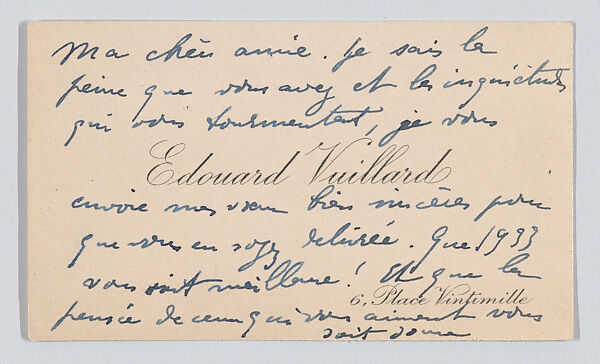 Ma chère amie. Je sais la
peine que vous avez et les inquiétudes
qui vous tourmentent, je vous
Edouard Vuillard
envoie mes vœux bien sincères pour
que vous en soyez délivrée. Que 1933
vous soit meilleure! Et que la
6, Place Vintimille
pensée de ceux qui vous aiment vous
soit douce